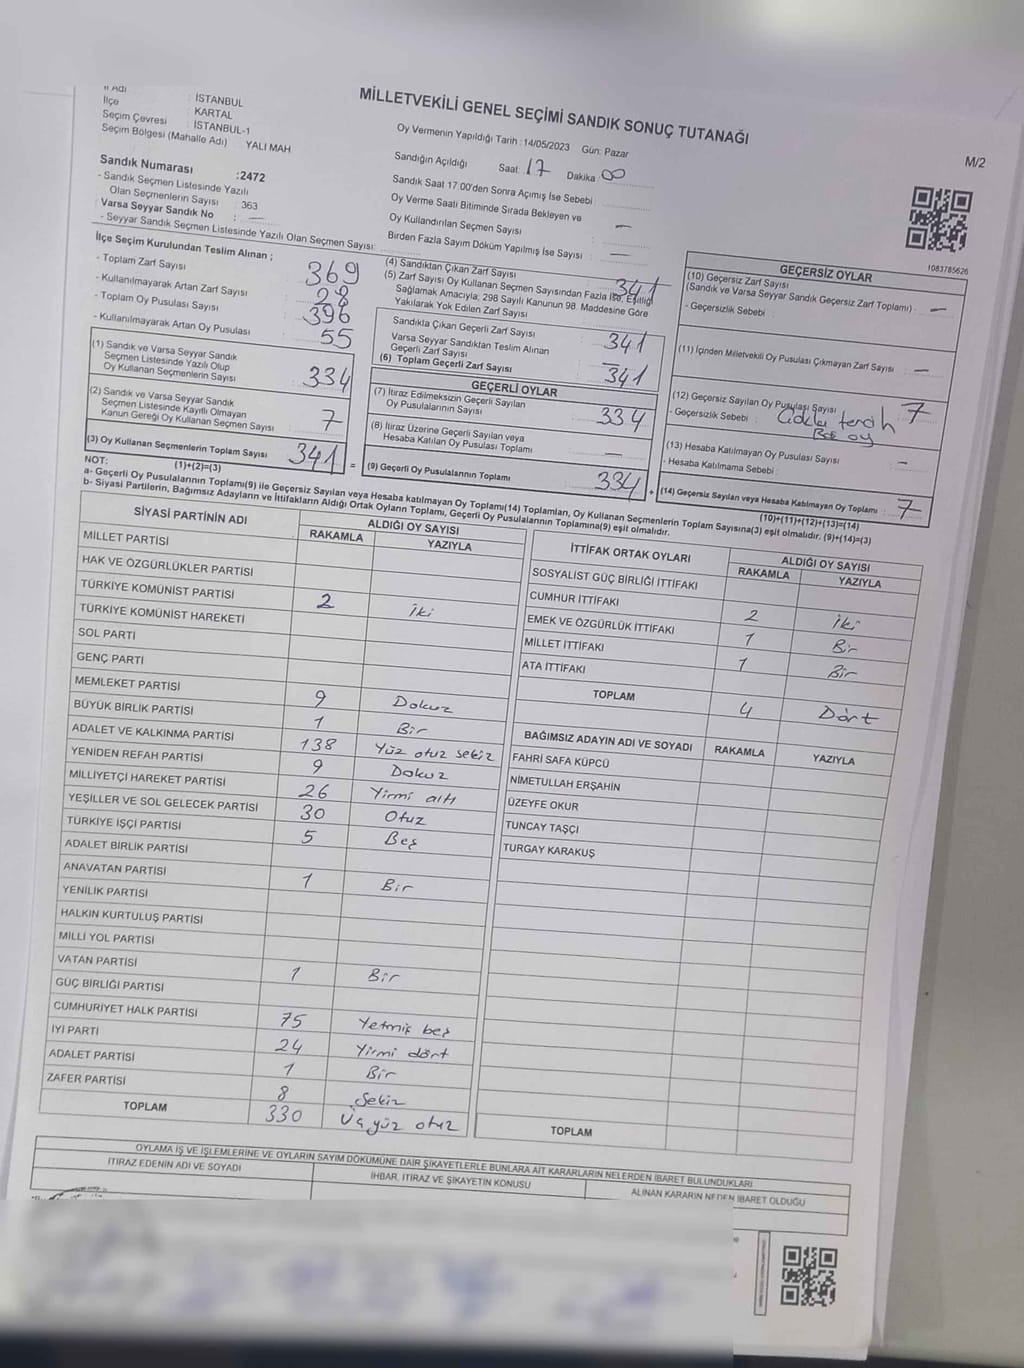 MİLLETVEKİLİ GENEL SEÇİMİ SANDIK SONUÇ TUTANAĞI
M/2
İl Adı İSTANBUL
İlçe : KARTAL
Seçim Çevresi : İSTANBUL-1
Seçim Bölgesi (Mahalle Adı) YALI MAH
Sandık Numarası :2472
- Sandık Seçmen Listesinde Yazılı
Olan Seçmenlerin Sayısı : 363
Varsa Seyyar Sandık No : —
- Seyyar Sandık Seçmen Listesinde Yazılı Olan Seçmen Sayısı:
Oy Vermenin Yapıldığı Tarih : 14/05/2023 Gün: Pazar
Sandığın Açıldığı Saat : 17 Dakika : 00
Sandık Saat 17:00'den Sonra Açımış İse Sebebi :
Oy Verme Saati Bitiminde Sırada Bekleyen ve
Oy Kullandırılan Seçmen Sayısı : —
Birden Fazla Sayım Döküm Yapılmış İse Sayısı : —
1083785626
İlçe Seçim Kurulundan Teslim Alınan ;
- Toplam Zarf Sayısı : 369
- Kullanılmayarak Artan Zarf Sayısı : 28
- Toplam Oy Pusulası Sayısı : 396
- Kullanılmayarak Artan Oy Pusulası : 55
(1) Sandık ve Varsa Seyyar Sandık
Seçmen Listesinde Yazılı Olup
Oy Kullanan Seçmenlerin Sayısı : 334
(2) Sandık ve Varsa Seyyar Sandık
Seçmen Listesinde Kayıtlı Olmayan
Kanun Gereği Oy Kullanan Seçmen Sayısı : 7
(3) Oy Kullanan Seçmenlerin Toplam Sayısı : 341
(1)+(2)=(3)
(4) Sandıktan Çıkan Zarf Sayısı : 341
(5) Zarf Sayısı Oy Kullanan Seçmen Sayısından Fazla İse, Eşitliği
Sağlamak Amacıyla, 298 Sayılı Kanunun 98. Maddesine Göre
Yakılarak Yok Edilen Zarf Sayısı
Sandıkta Çıkan Geçerli Zarf Sayısı : 341
Varsa Seyyar Sandıktan Teslim Alınan
Geçerli Zarf Sayısı
(6) Toplam Geçerli Zarf Sayısı : 341
GEÇERLİ OYLAR
(7) İtiraz Edilmeksizin Geçerli Sayılan
Oy Pusulalarının Sayısı : 334
(8) İtiraz Üzerine Geçerli Sayılan veya
Hesaba Katılan Oy Pusulası Toplamı : —
= (9) Geçerli Oy Pusulalarının Toplamı : 334
GEÇERSİZ OYLAR
(10) Geçersiz Zarf Sayısı
(Sandık ve Varsa Seyyar Sandık Geçersiz Zarf Toplamı) : —
- Geçersizlik Sebebi :
(11) İçinden Milletvekili Oy Pusulası Çıkmayan Zarf Sayısı : —
(12) Geçersiz Sayılan Oy Pusulası Sayısı : 7
- Geçersizlik Sebebi : tercih
Boş oy
(13) Hesaba Katılmayan Oy Pusulası Sayısı : —
- Hesaba Katılmama Sebebi :
+ (14) Geçersiz Sayılan veya Hesaba Katılmayan Oy Toplamı : 7
(10)+(11)+(12)+(13)=(14)
NOT:
a- Geçerli Oy Pusulalarının Toplamı(9) ile Geçersiz Sayılan veya Hesaba katılmayan Oy Toplamı(14) Toplamları, Oy Kullanan Seçmenlerin Toplam Sayısına(3) eşit olmalıdır. (9)+(14)=(3)
b- Siyasi Partilerin, Bağımsız Adayların ve İttifakların Aldığı Ortak Oyların Toplamı, Geçerli Oy Pusulalarının Toplamına(9) eşit olmalıdır.
SİYASİ PARTİNİN ADI ALDIĞI OY SAYISI
RAKAMLA YAZIYLA
MİLLET PARTİSİ
HAK VE ÖZGÜRLÜKLER PARTİSİ
TÜRKİYE KOMÜNİST PARTİSİ 2 iki
TÜRKİYE KOMÜNİST HAREKETİ
SOL PARTİ
GENÇ PARTİ
MEMLEKET PARTİSİ 9 Dokuz
BÜYÜK BİRLİK PARTİSİ 1 Bir
ADALET VE KALKINMA PARTİSİ 138 Yüz otuz sekiz
YENİDEN REFAH PARTİSİ 9 Dokuz
MİLLİYETÇİ HAREKET PARTİSİ 26 Yirmi altı
YEŞİLLER VE SOL GELECEK PARTİSİ 30 Otuz
TÜRKİYE İŞÇİ PARTİSİ 5 Beş
ADALET BİRLİK PARTİSİ
ANAVATAN PARTİSİ 1 Bir
YENİLİK PARTİSİ
HALKIN KURTULUŞ PARTİSİ
MİLLİ YOL PARTİSİ
VATAN PARTİSİ 1 Bir
GÜÇ BİRLİĞİ PARTİSİ
CUMHURİYET HALK PARTİSİ 75 Yetmiş beş
İYİ PARTİ 24 Yirmi dört
ADALET PARTİSİ 1 Bir
ZAFER PARTİSİ 8 Sekiz
TOPLAM 330 Üçyüz otuz
İTTİFAK ORTAK OYLARI ALDIĞI OY SAYISI
RAKAMLA YAZIYLA
SOSYALİST GÜÇ BİRLİĞİ İTTİFAKI
CUMHUR İTTİFAKI 2 iki
EMEK VE ÖZGÜRLÜK İTTİFAKI 1 Bir
MİLLET İTTİFAKI 1 Bir
ATA İTTİFAKI
TOPLAM 4 Dört
BAĞIMSIZ ADAYIN ADI VE SOYADI RAKAMLA YAZIYLA
FAHRİ SAFA KÜPCÜ
NİMETULLAH ERŞAHİN
ÜZEYFE OKUR
TUNCAY TAŞÇI
TURGAY KARAKUŞ
TOPLAM
OYLAMA İŞ VE İŞLEMLERİNE VE OYLARIN SAYIM DÖKÜMÜNE DAİR ŞİKAYETLERLE BUNLARA AİT KARARLARIN NELERDEN İBARET BULUNDUKLARI
İTİRAZ EDENİN ADI VE SOYADI İHBAR, İTİRAZ VE ŞİKAYETİN KONUSU ALINAN KARARIN NEDEN İBARET OLDUĞU